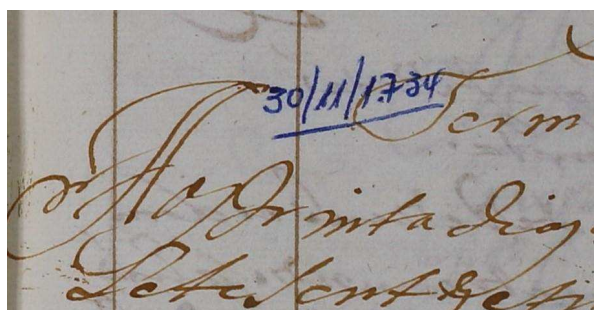 30/11/1.734
Term
Aos trinta dias
Setesent & etri